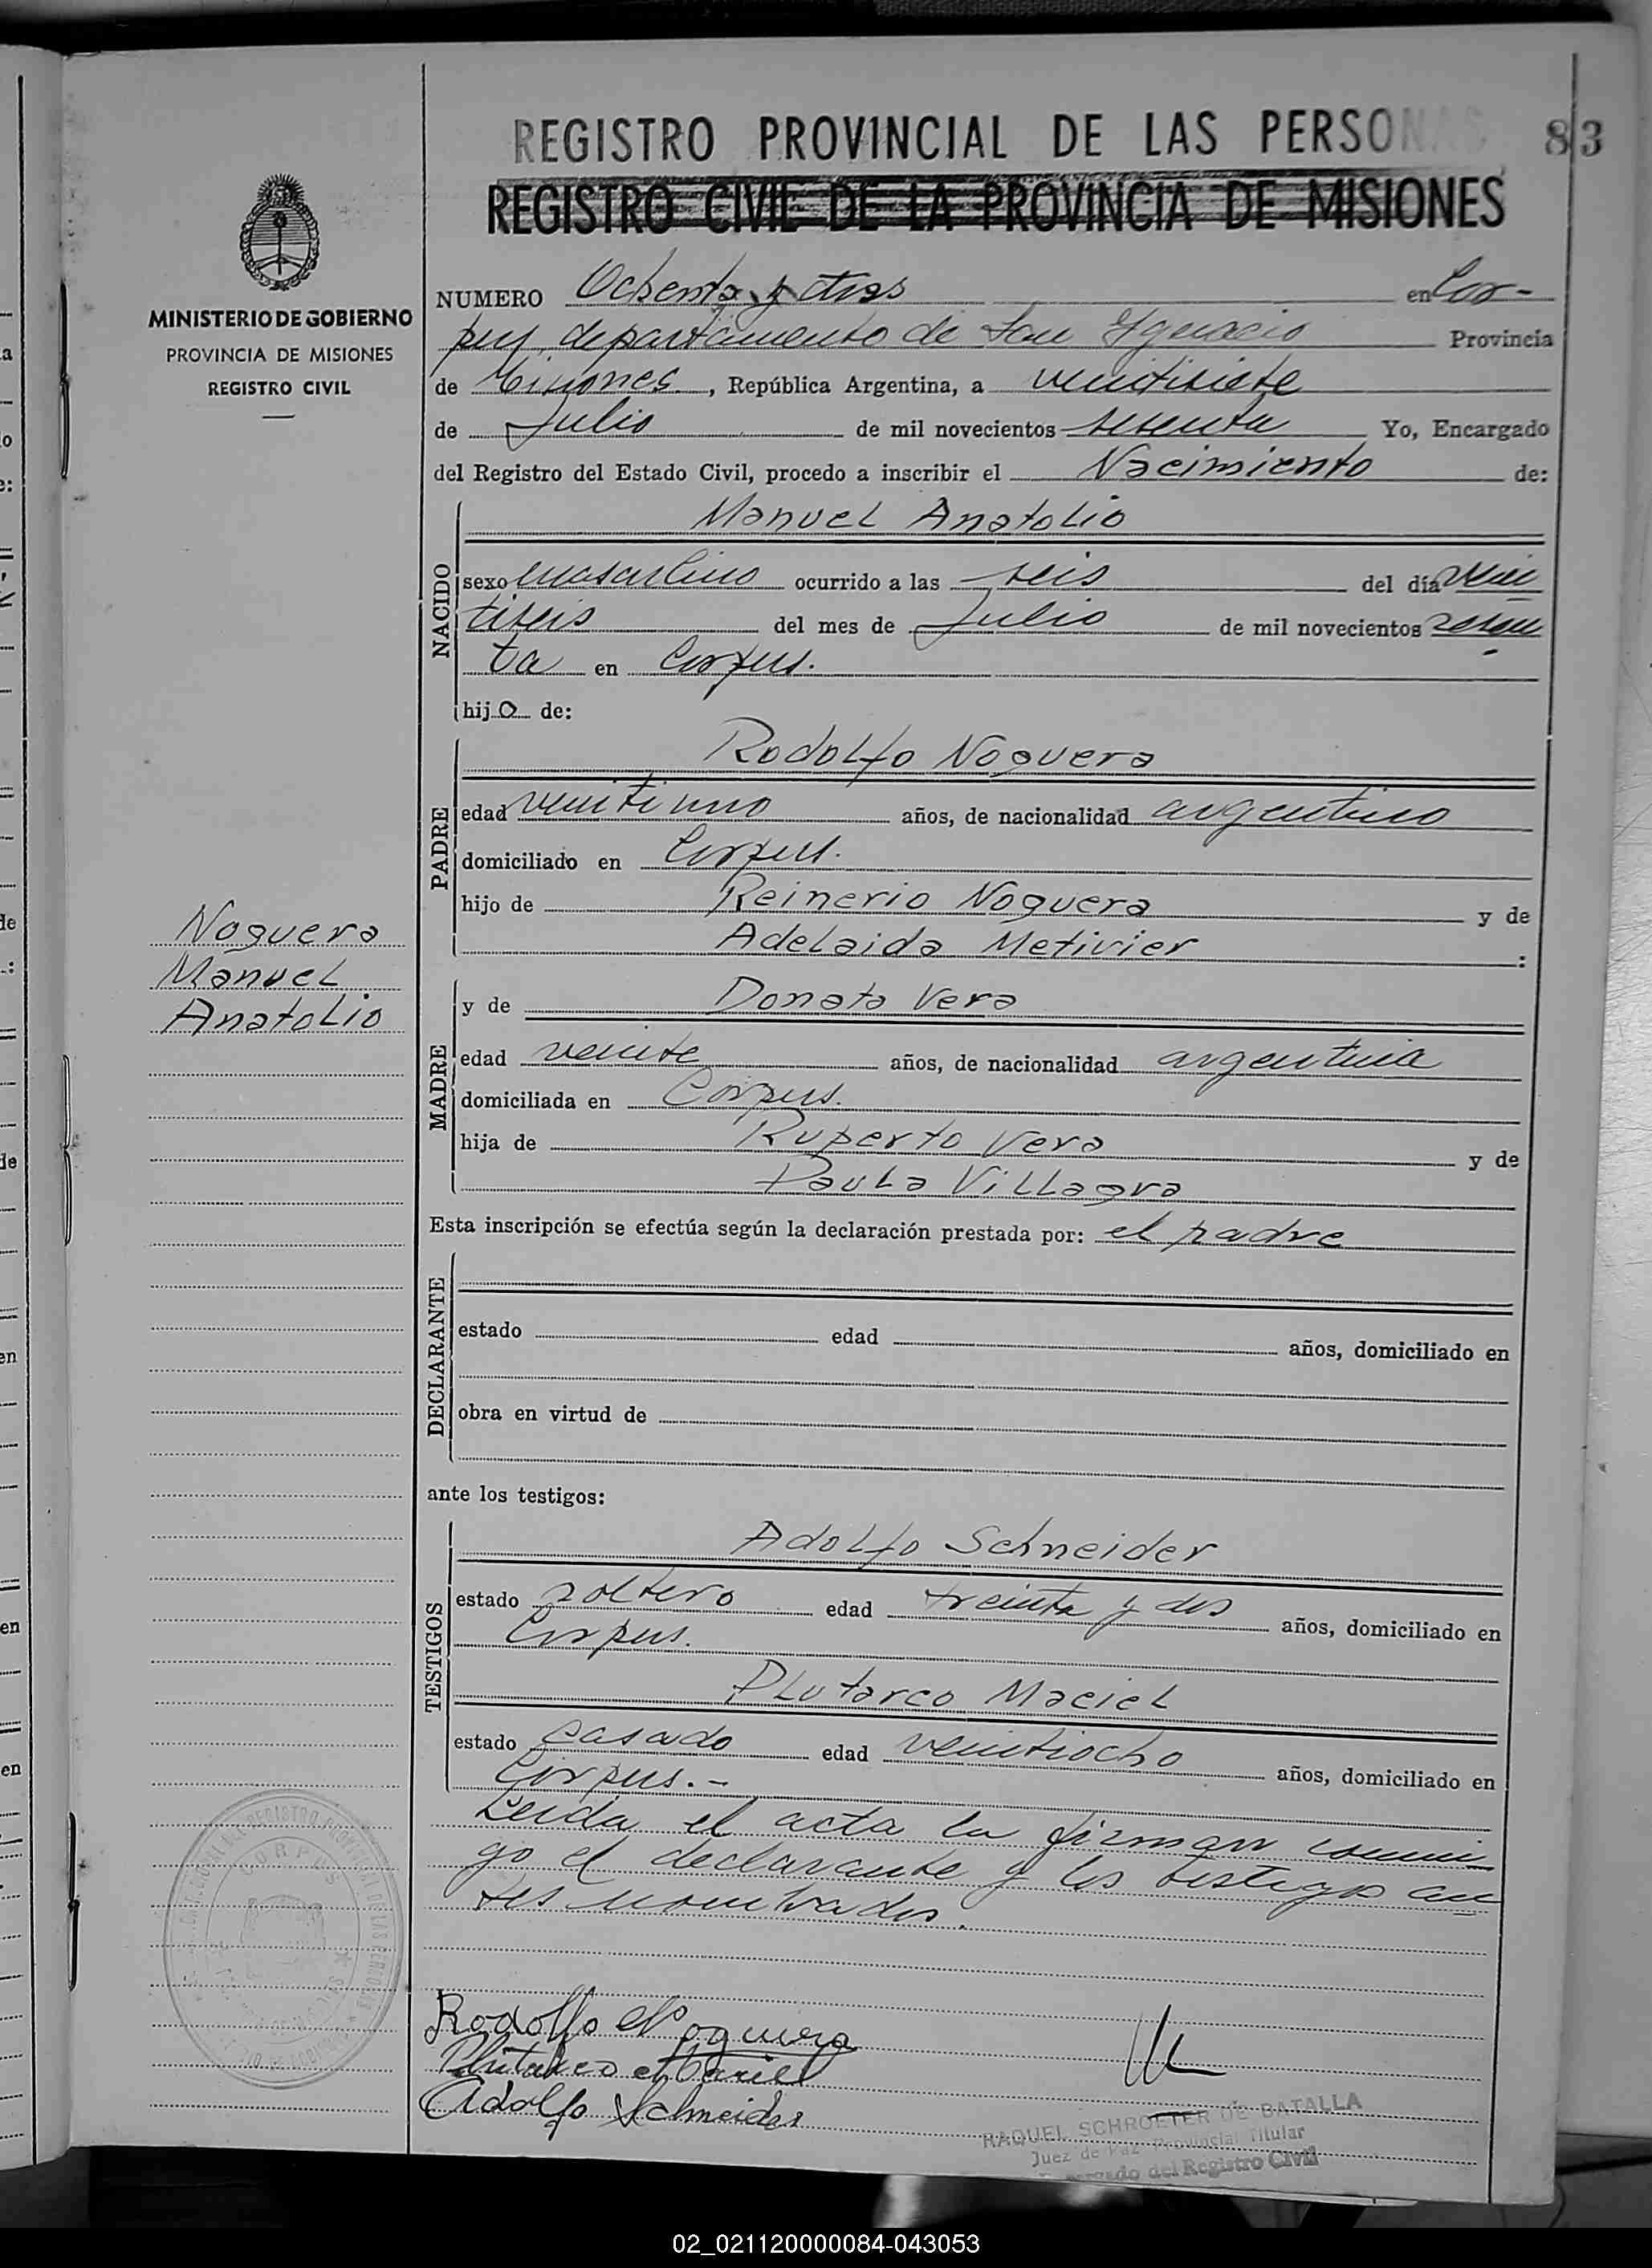 REGISTRO PROVINCIAL DE LAS PERSONAS
83
REGISTRO CIVIL DE LA PROVINCIA DE MISIONES
MINISTERIO DE GOBIERNO
PROVINCIA DE MISIONES
REGISTRO CIVIL
NUMERO Ochenta y tres en Cor-
pus, departamento de San Ignacio Provincia
de Misiones, República Argentina, a veintisiete
de Julio de mil novecientos setenta Yo, Encargado
del Registro del Estado Civil, procedo a inscribir el Nacimiento de:
NACIDO
Manuel Anatolio
sexo masculino ocurrido a las seis del día vein
tiseis del mes de Julio de mil novecientos seten
ta en Corpus.
hijo de:
PADRE
Rodolfo Noguera
edad veintiuno años, de nacionalidad argentino
domiciliado en Corpus.
hijo de Reinerio Noguera y de
Adelaida Metivier :
Noguera
Manuel
Anatolio
MADRE
y de Donata Vera
edad veinte años, de nacionalidad argentina
domiciliada en Corpus.
hija de Ruperto Vera y de
Paula Villagra
Esta inscripción se efectúa según la declaración prestada por: el padre
DECLARANTE
estado edad años, domiciliado en
obra en virtud de
ante los testigos:
TESTIGOS
Adolfo Schneider
estado soltero edad treinta y dos años, domiciliado en
Corpus.
Plutarco Maciel
estado casado edad veintiocho años, domiciliado en
Corpus.-
Leida el acta la firman conmi
go el declarante y los testigos an
tes nombrados.
CORPUS
Rodolfo Noguera
Plutarco Maciel
Adolfo Schneider
RAQUEL SCHROETER DE BATALLA
Juez de Paz Provincial Titular
Encargado del Registro Civil
02_021120000084-043053